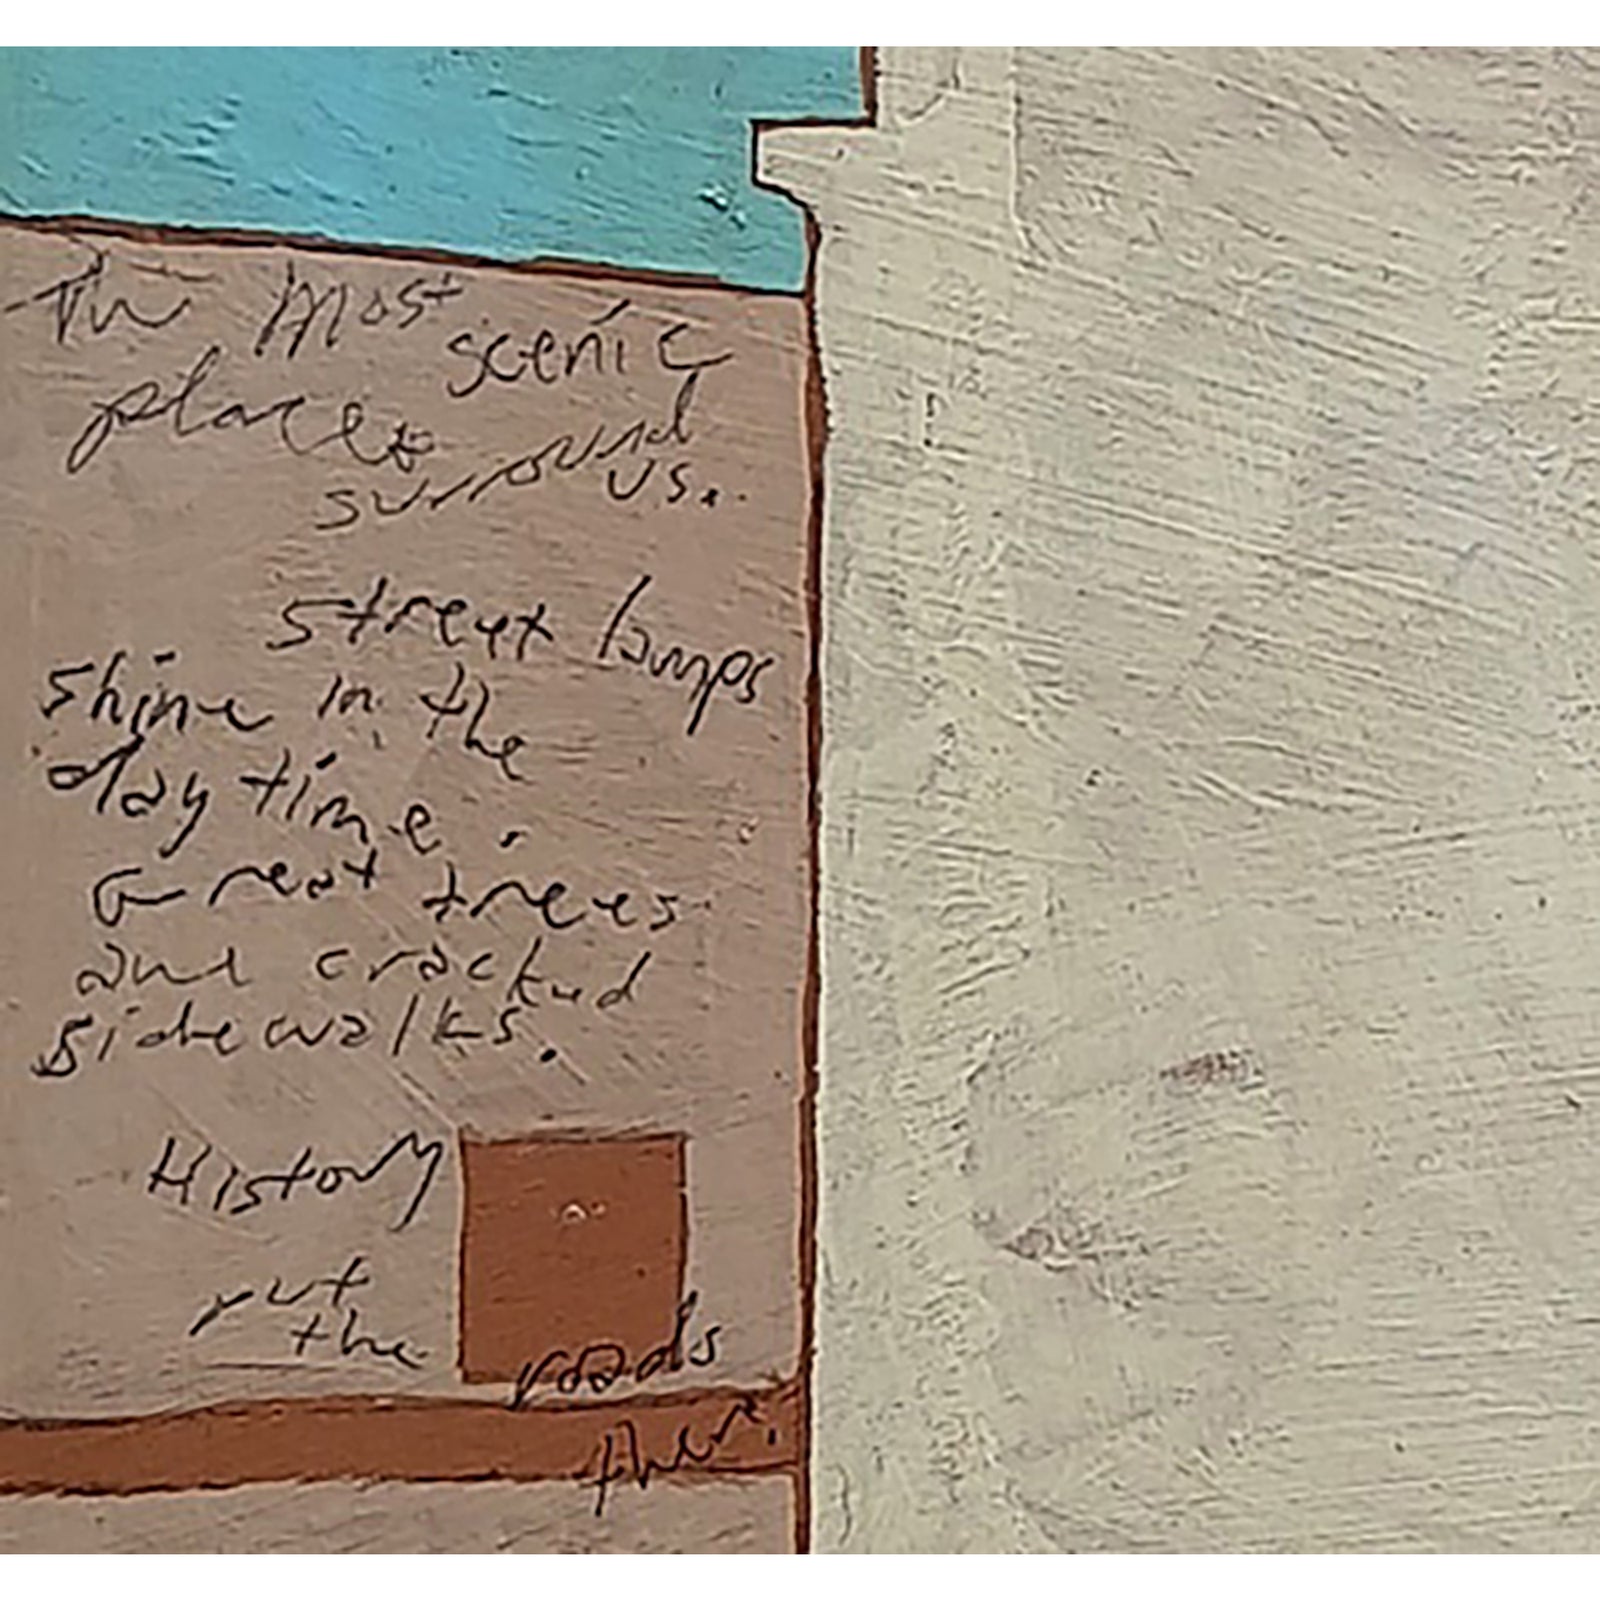 The Most scenic
places surround
us.
street lamps
shine in the
day time.
Great trees
and cracked
sidewalks.
History
put
the roads
there.